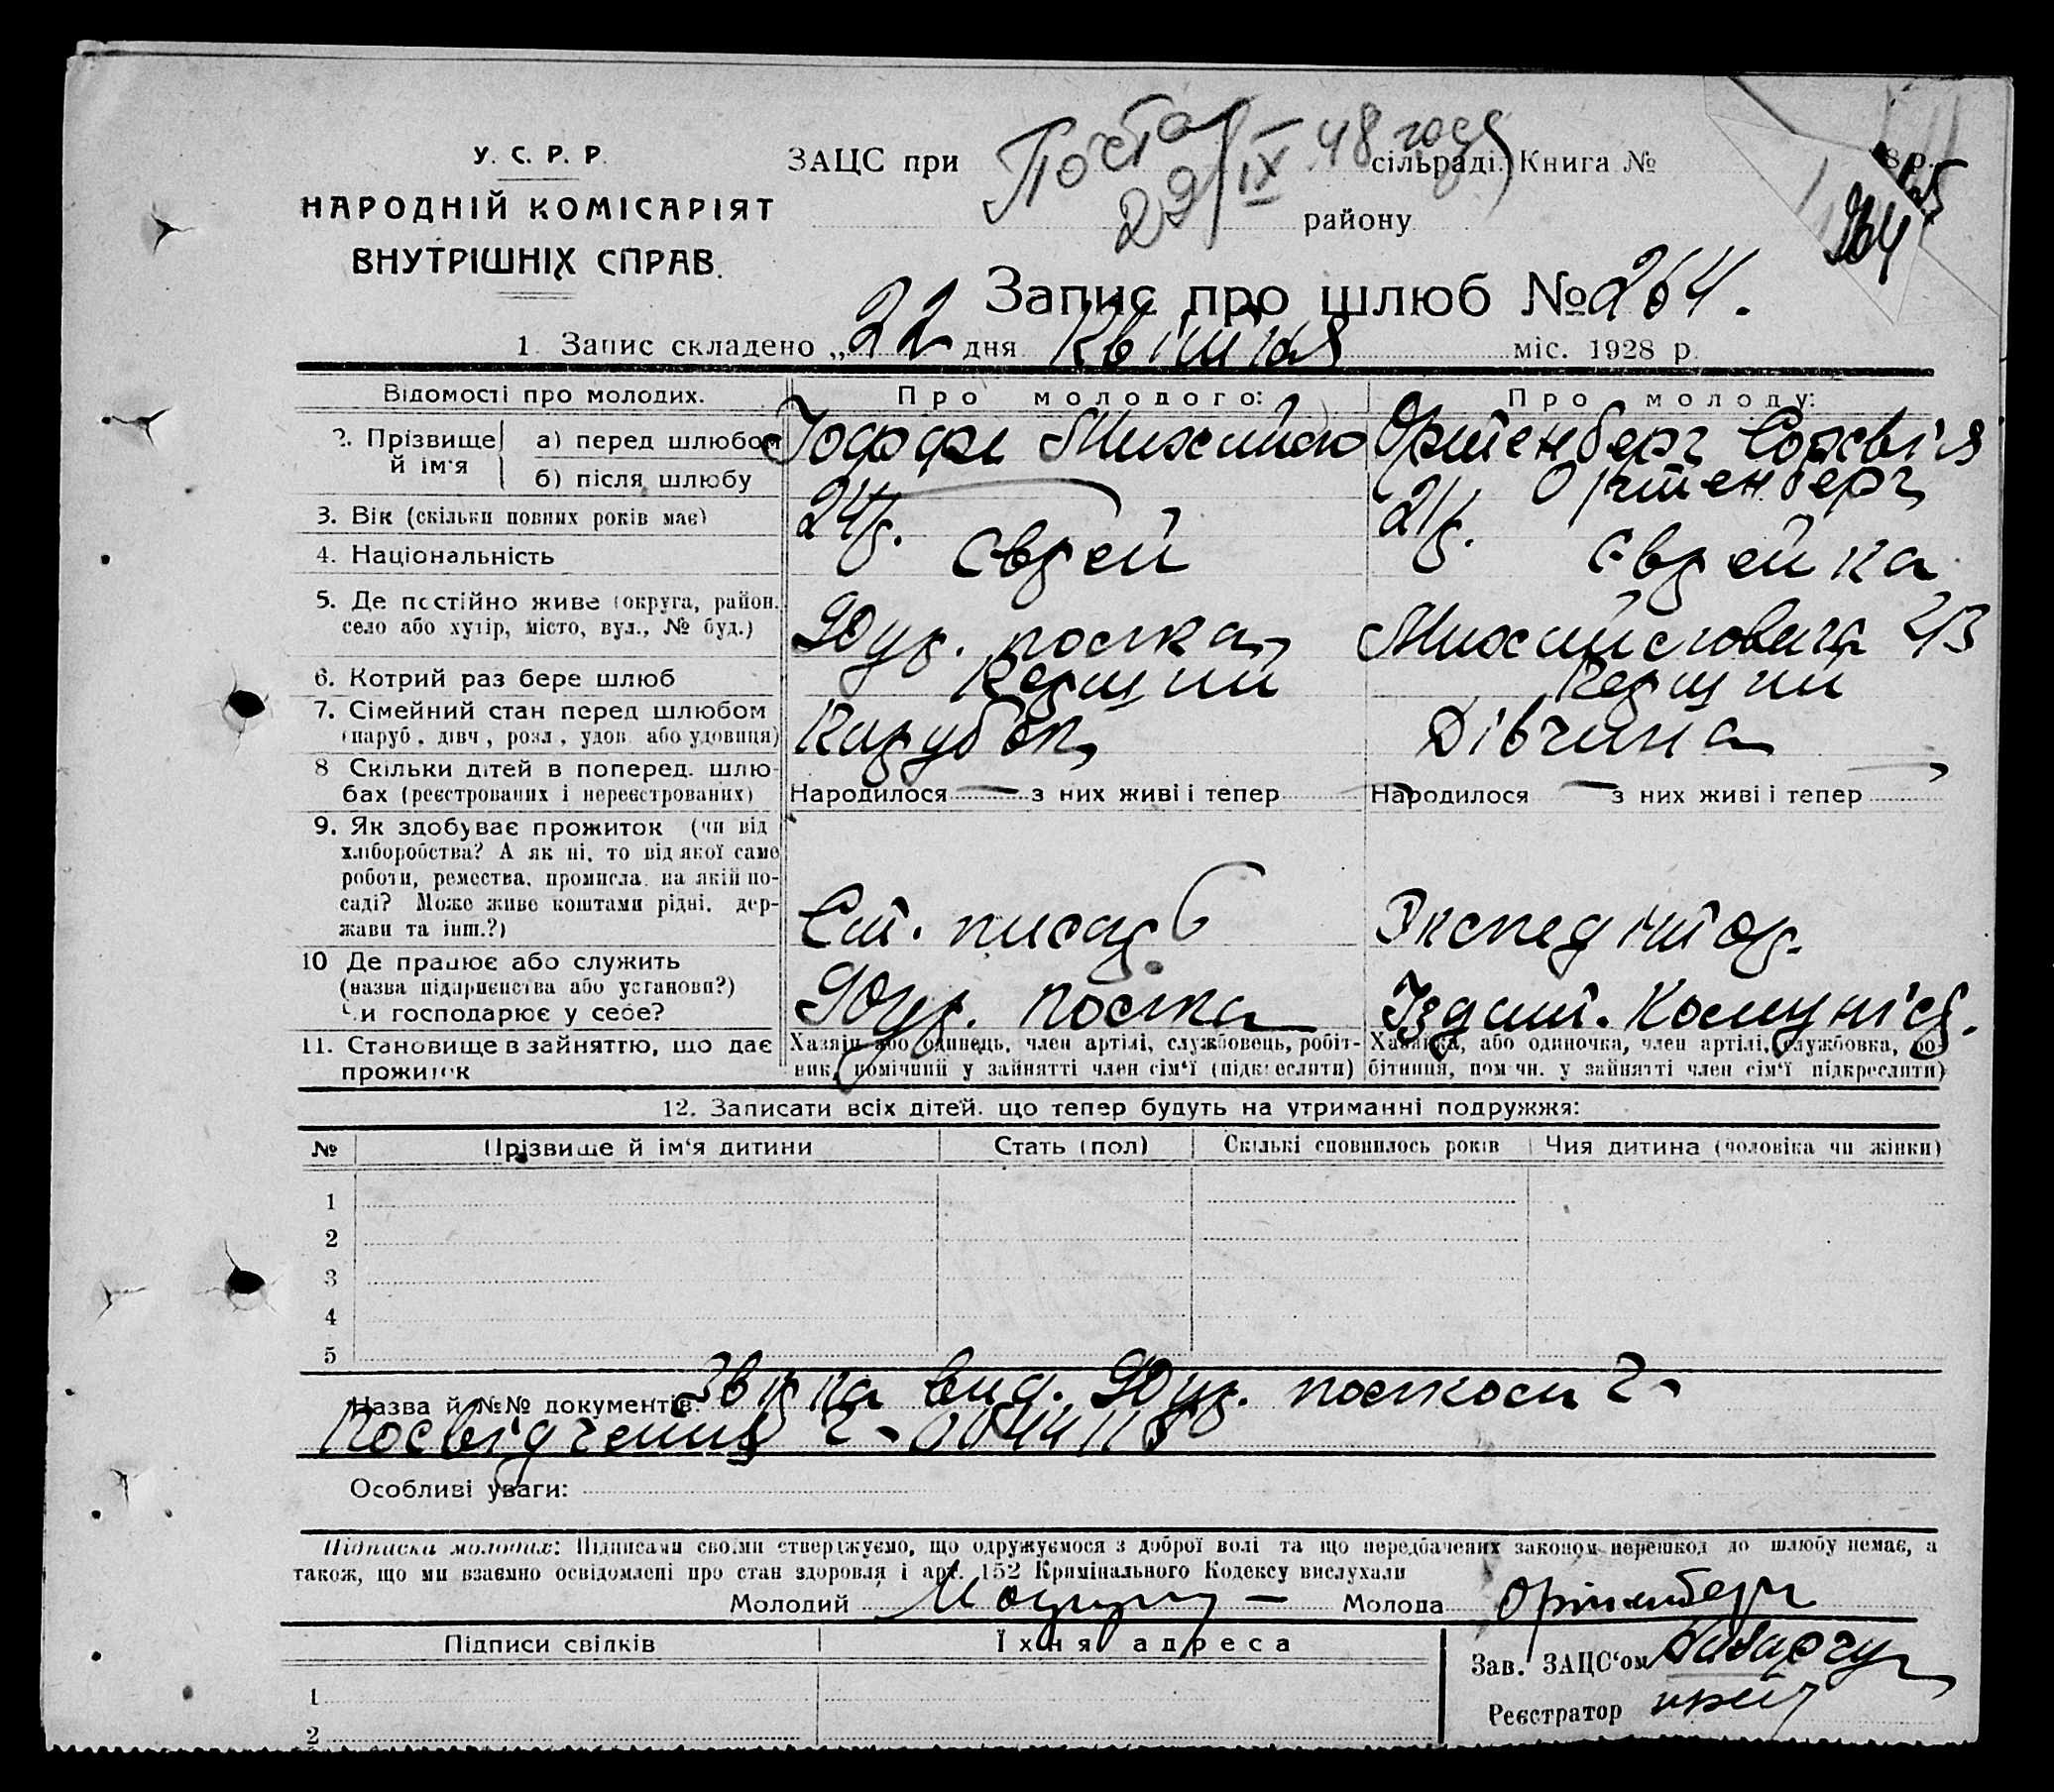 У. С. Р. Р.
НАРОДНІЙ КОМІСАРІЯТ
ВНУТРІШНІХ СПРАВ.
ЗАЦС при сільраді. Книга №
Почта 29/IX 48 года
району
264
Запис про шлюб № 264.
1. Запис складено „22 дня Квітня міс. 1928 р.
Відомості про молодих.
Про молодого:
Про молоду:
2. Прізвище й ім'я
а) перед шлюбом
Іоффе Михайло
Ортенберг
б) після шлюбу
Ортенберг
3. Вік (скільки повних років має)
24 р.
21 р.
4. Національність
Єврей
Єврейка
5. Де постійно живе (округа, район, село або хутір, місто, вул., № буд.)
полка
6. Котрий раз бере шлюб
Перший
Перший
7. Сімейний стан перед шлюбом
(паруб., дівч., розл., удов. або удовиця)
Парубок
Дівчина
8 Скільки дітей в поперед. шлюбах (реєстрованих і нереєстрованих)
Народилося — з них живі і тепер
Народилося — з них живі і тепер
9. Як здобуває прожиток (чи від
хліборобства? А як ні, то від якої саме
роботи, ремества, промисла, на якій по-
саді? Може живе коштами рідні, дер-
жави та інш.?)
Ст. писар
Экспедитор.
10 Де працює або служить
(назва підприємства або установи?)
Чи господарює у себе?
полка
Іздат. Комуніст.
11. Становище в зайняттю, що дає
прожиток
Хазяїн або одинець, член артілі, службовець, робіт-
ник, помічний у зайнятті член сім'ї (підкреслити)
Хазяйка, або одиночка, член артілі, службовка, ро-
бітниця, пом чн. у зайнятті член сім'ї підкреслити)
12. Записати всіх дітей, що тепер будуть на утриманні подружжя:
№
Прізвище й ім'я дитини
Стать (пол)
Скількі сповнилось років
Чия дитина (чоловіка чи жінки)
1
2
3
4
5
Назва й №№ документів: вид. полком
Посвідчення
Особливі уваги:
Підписка молодих: Підписами своїми стверджуємо, що одружуємося з доброї волі та що передбачених законом перешкод до шлюбу немає, а
також, що ми взаємно освідомлені про стан здоровля і арт. 152 Кримінального Кодексу вислухали
Молодий
Молода Ортенберг
Підписи свідків
Їхня адреса
Зав. ЗАЦС'ом
1
Реєстратор
2